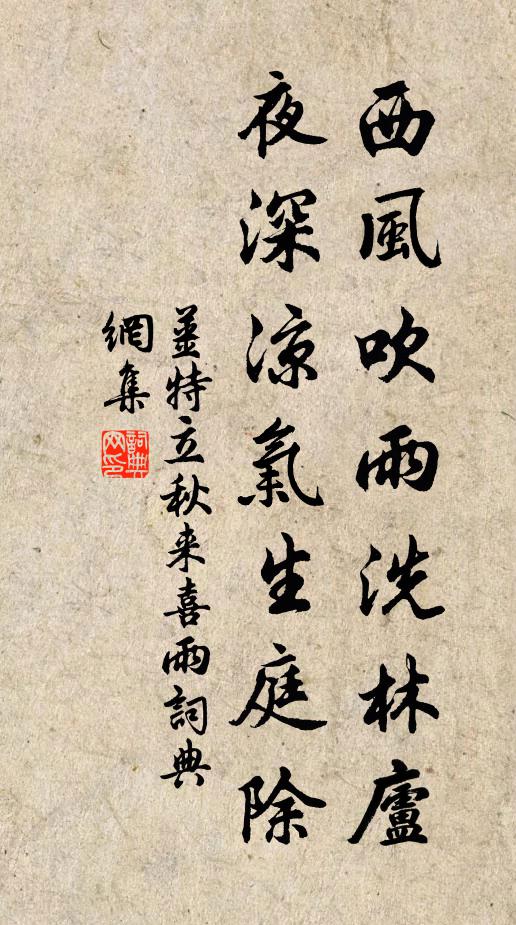 西風吹雨洗林廬
夜深涼氣生庭除
薑特立秋来喜雨詞典
網集
詞典网印